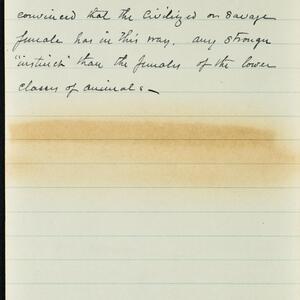 convinced that the Civilized or Savage
female has in this way, any stronger
"instinct" than the females of the lower
classes of animals –